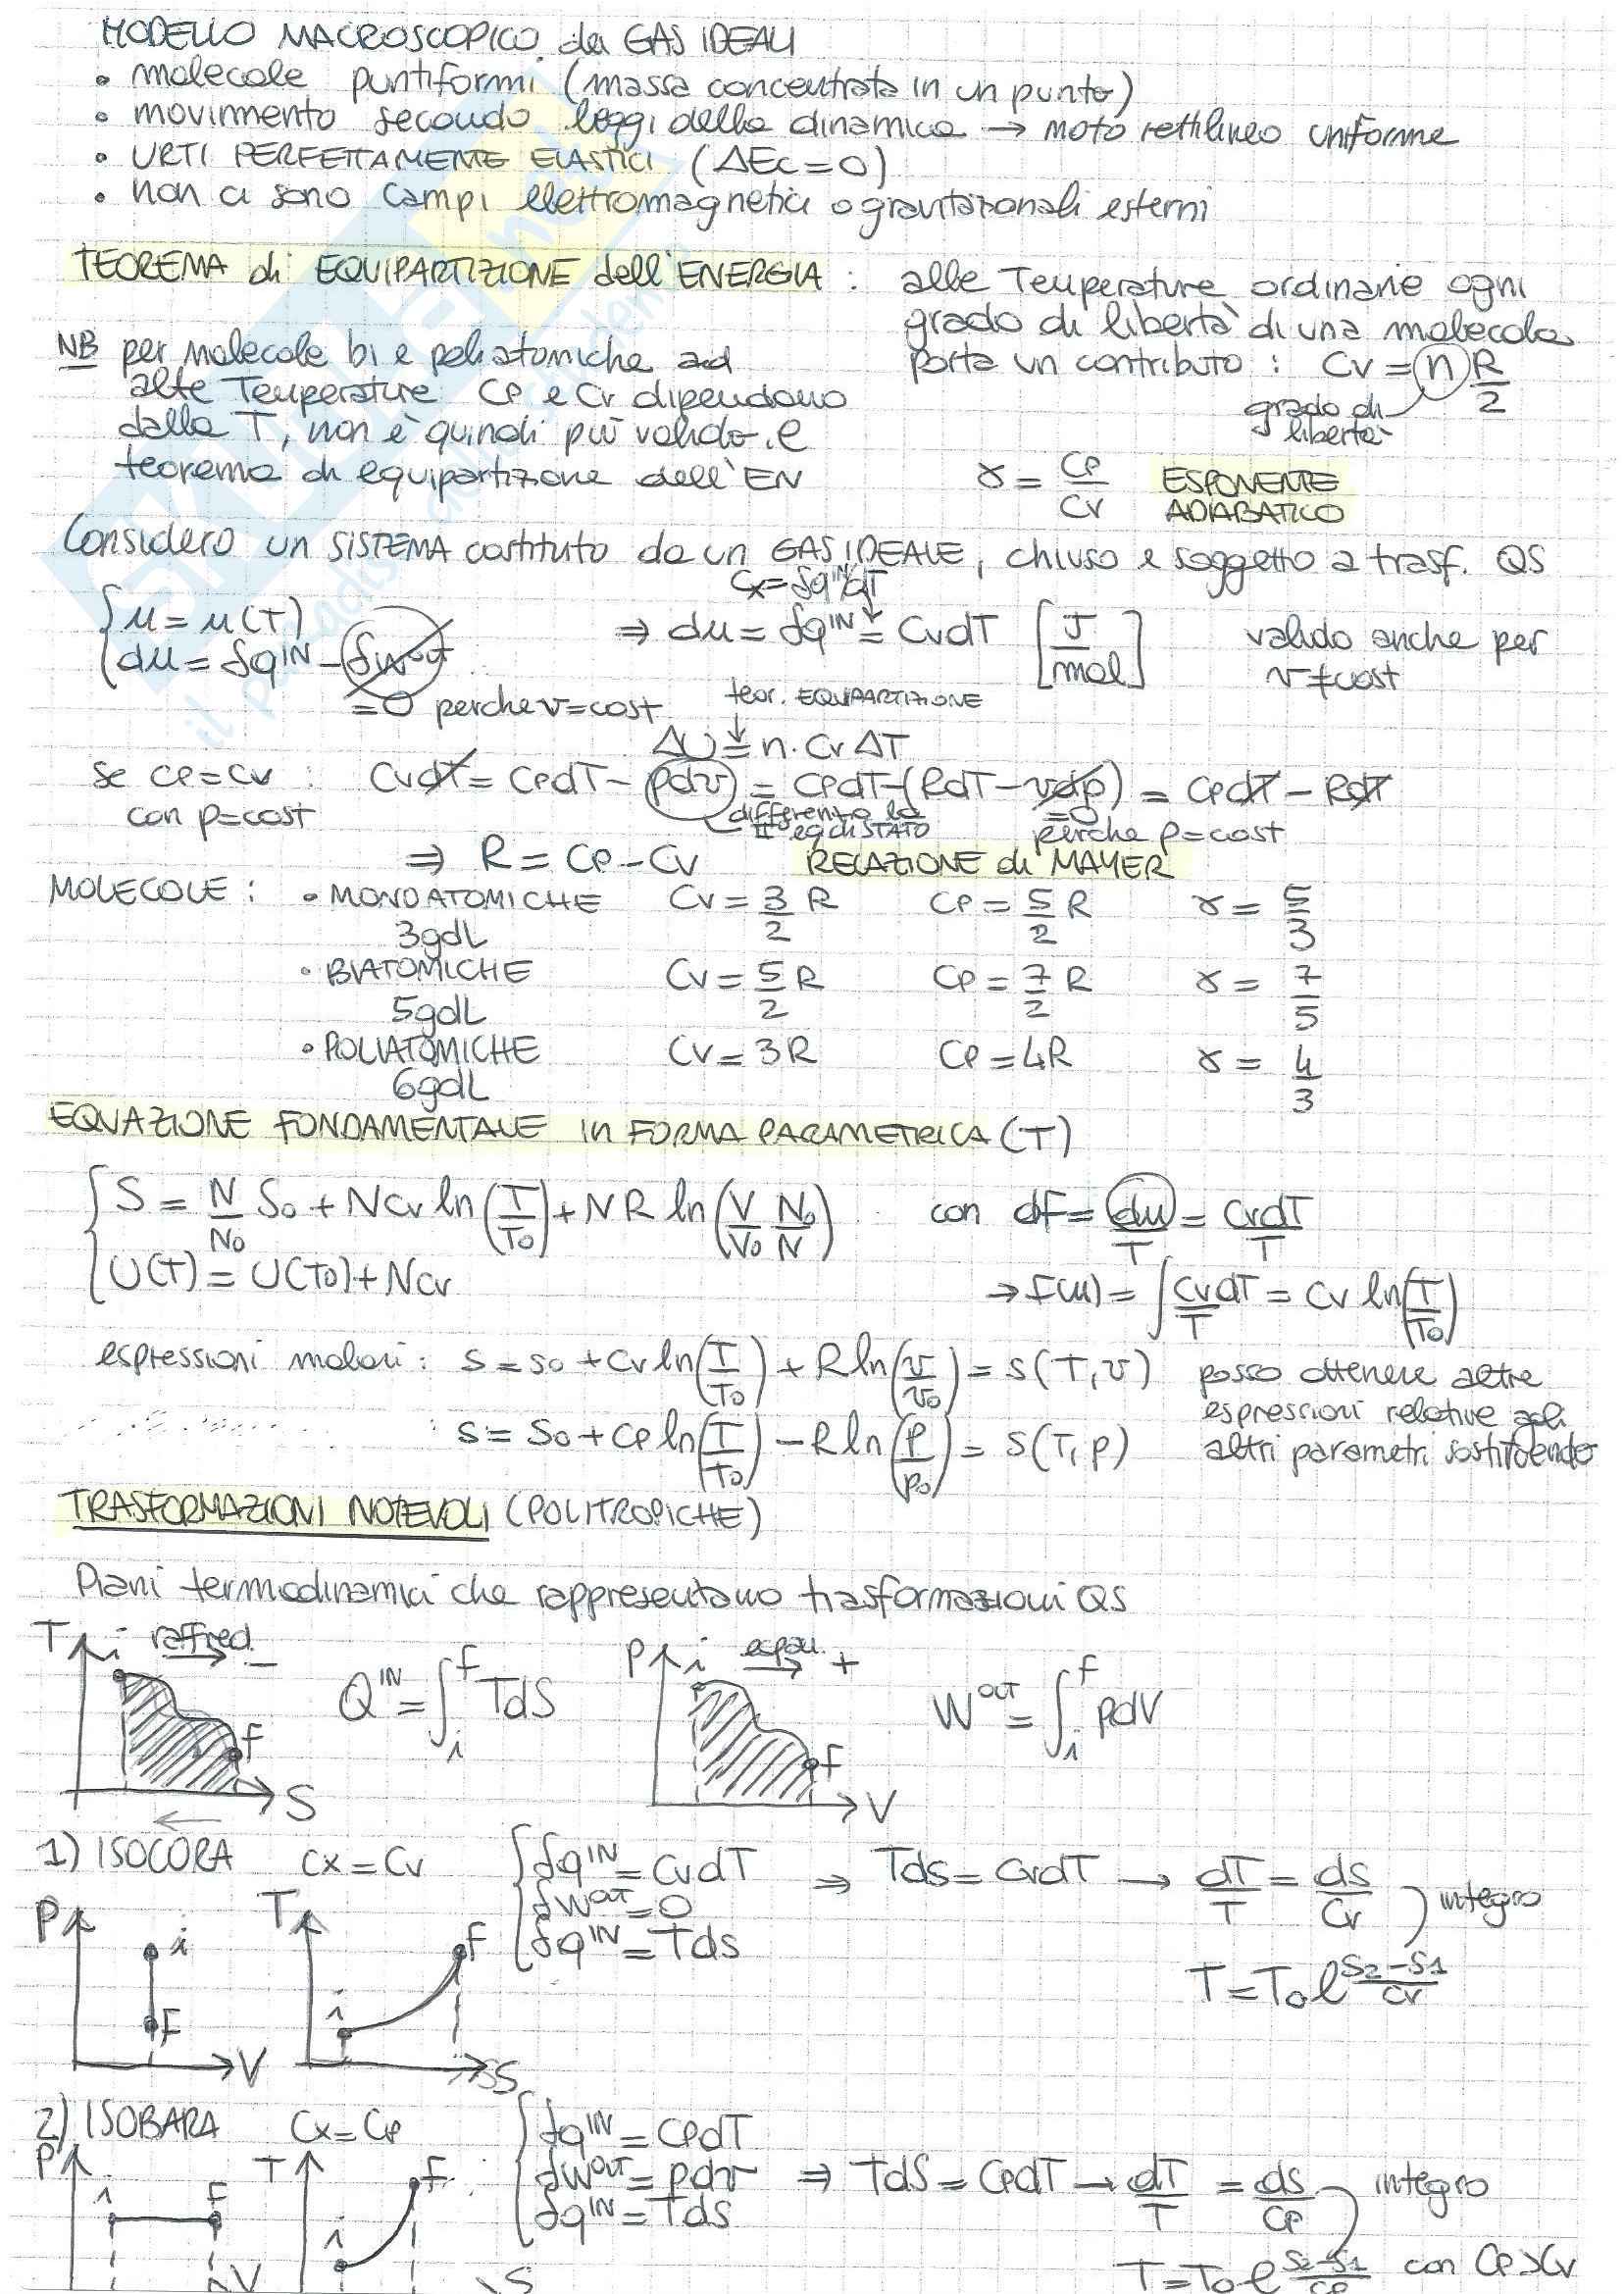 MODELLO MACROSCOPICO dei GAS IDEALI
• molecole puntiformi (massa concentrata in un punto)
• movimento secondo leggi della dinamica → moto rettilineo uniforme
• URTI PERFETTAMENTE ELASTICI (ΔEc=0)
• non ci sono campi elettromagnetici o gravitazionali esterni
TEOREMA di EQUIPARTIZIONE dell'ENERGIA : alle Temperature ordinarie ogni
grado di libertà di una molecola
porta un contributo : Cv = n R/2
grado di libertà
NB per molecole bi e poliatomiche ad
alte Temperature Cp e Cv dipendono
dalla T, non è quindi più valido il
teorema di equipartizione dell'EN
γ = Cp/Cv ESPONENTE ADIABATICO
Considero un SISTEMA costituto da un GAS IDEALE, chiuso e soggetto a trasf. QS
Cx = δq^IN/dT
{ u = u(T)
du = δq^IN - δw^OUT ⇒ du = δq^IN = CvdT [J/mol] valido anche per
v≠cost
=0 perche v=cost
teor. EQUIPARTIZIONE
ΔU = n·Cv ΔT
se cp=cv : CvdT = CpdT - pdv = CpdT-(RdT - vdp) = CpdT - RdT
con p=cost
differenzio la eq di STATO
=0 perche p=cost
⇒ R = Cp - Cv RELAZIONE di MAYER
MOLECOLE : • MONOATOMICHE Cv = 3/2 R Cp = 5/2 R γ = 5/3
3gdL
• BIATOMICHE Cv = 5/2 R Cp = 7/2 R γ = 7/5
5gdL
• POLIATOMICHE Cv = 3R Cp = 4R γ = 4/3
6gdL
EQUAZIONE FONDAMENTALE in FORMA PARAMETRICA (T)
{ S = N/N0 S0 + NCv ln(T/T0) + NR ln(V/V0 N0/N) con dF = du/T = CvdT/T
U(T) = U(T0) + NCv
→ F(u) = ∫ CvdT/T = Cv ln(T/T0)
espressioni molari : s = s0 + Cv ln(T/T0) + R ln(v/v0) = s(T,v) posso ottenere altre
espressioni relative agli
s = s0 + Cp ln(T/T0) - R ln(p/p0) = s(T,p) altri parametri sostituendo
TRASFORMAZIONI NOTEVOLI (POLITROPICHE)
Piani termodinamici che rappresentano trasformazioni QS
T i raffred. −
Q^IN = ∫_i^F TdS
f
S
P i espan. +
W^OUT = ∫_i^F pdV
f
V
1) ISOCORA Cx = Cv { δq^IN = CvdT
δw^OUT = 0
δq^IN = Tds ⇒ Tds = CvdT → dT/T = ds/Cv integro
T = T0 e^(S2-S1/Cv)
P i F V
T i F S
2) ISOBARA Cx = Cp { δq^IN = CpdT
δw^OUT = pdv
δq^IN = Tds ⇒ TdS = CpdT → dT/T = ds/Cp integro
T = T0 e^(S2-S1/Cp) con Cp>Cv
P i F V
T i F S